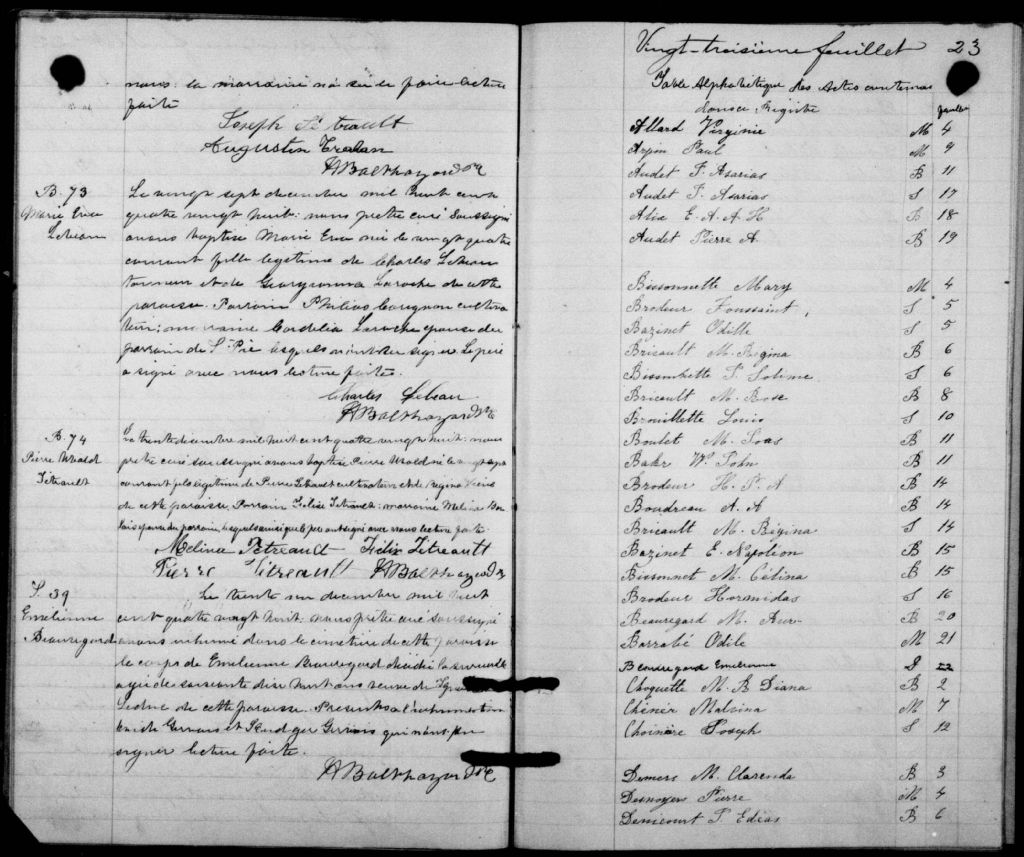 nous la marraine n'a su le faire lecture
faite
Joseph Tétrault
Augustin
A Balthazard Ptre
B. 73
Marie
Le vingt sept decembre mil huit cent
quatre vingt huit: nous prêtre curé soussigné
avons baptisé Marie née le vingt quatre
courant fille légitime de Charles
et de Laroche de cette
paroisse. Parrain Philias cultiva
teur; marraine Cordelia Laroche épouse du
parrain de St Pie lesquels n'ont su signer. Le père
a signé avec nous lecture faite.
Charles
A Balthazard Ptre
B. 74
Pierre
Tétrault
Le trente decembre mil huit cent quatre vingt huit: nous
prêtre curé soussigné avons baptisé Pierre né le
courant fils légitime de Pierre Tétrault cultivateur et de Regina
de cette paroisse Parrain Felix Tétrault: marraine Melina
épouse du parrain, lesquels ainsi que le père ont signé avec nous lecture faite.
Melina Tetreault Félix Tétreault
Pierre Tétreault A Balthazard Ptre
S. 39
Emélienne
Beauregard
Le trente un decembre mil huit
cent quatre vingt huit: nous prêtre curé soussigné
avons inhumé dans le cimetière de cette paroisse
le corps de Emelienne Beauregard décédée la surveille
agée de soixante dix huit ans veuve de
Leduc de cette paroisse. Presents à l'inhumation
Gervais et Gervais qui n'ont pu
signer lecture faite.
A Balthazard Ptre
Vingt-troisième feuillet 23
Table Alphabétique des Actes contenus
dans ce Registre
feuillet
Allard Virginie M 4
Arpin Paul M 9
Audet F. Asarias B 11
Audet F. Asarias S 17
Alix E. A. A. H B 18
Audet Pierre A. B 19
Bissonnette Mary M 4
Brodeur Toussaint, S 5
Bazinet Odille S 5
Bricault M. Régina B 6
Bissonnette F. Solime S 6
Bricault M. Rose B 8
Brouillette Louis S 10
Boulet M. Loas B 11
Baker Wm John B 11
Brodeur H. P. A B 14
Boudreau A. A B 14
Bricault M. Régina S 14
Bazinet E. Napoléon B 15
Bissonnet M. Célina B 15
Brodeur Hormidas S 16
Beauregard M. B 20
Barrabé Odile M 21
Beauregard Emelienne S 22
Choquette M. B Diana B 2
Chénier Malvina M 7
Choinière Joseph S 12
Demers M. Clarenda B 3
Desnoyers Pierre M 4
Denicourt J. Edéas B 6